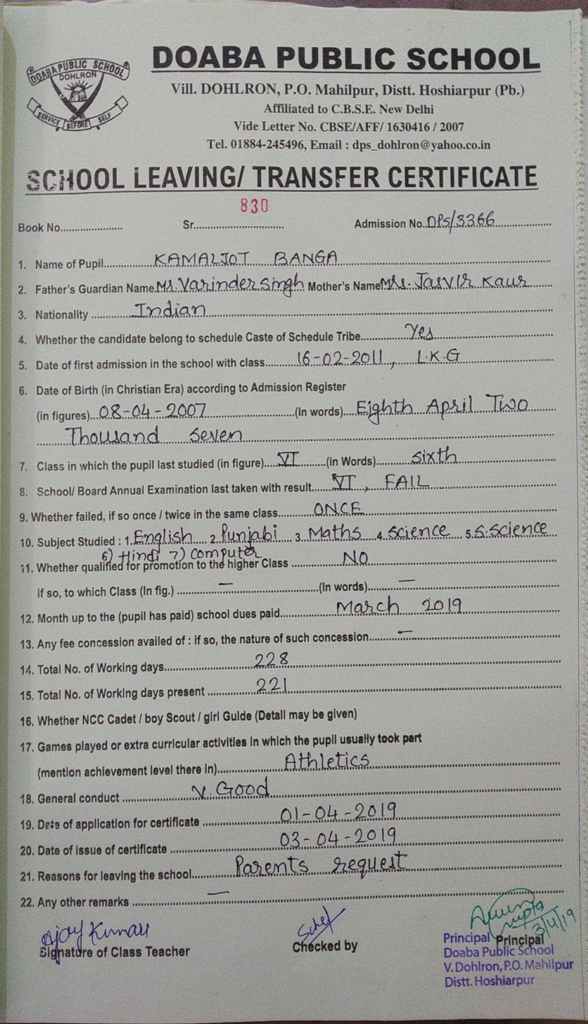 DOABA PUBLIC SCHOOL
DOHLRON
SERVICE BEFORE SELF
DOABA PUBLIC SCHOOL
Vill. DOHLRON, P.O. Mahilpur, Distt. Hoshiarpur (Pb.)
Affiliated to C.B.S.E. New Delhi
Vide Letter No. CBSE/AFF/ 1630416 / 2007
Tel. 01884-245496, Email : dps_dohlron@yahoo.co.in
SCHOOL LEAVING/ TRANSFER CERTIFICATE
Book No..................... Sr. 830 Admission No. DPS/3366
1. Name of Pupil. KAMALJOT BANGA
2. Father's Guardian Name Mr. Varinder Singh Mother's Name Mrs. Jasvir Kaur
3. Nationality Indian
4. Whether the candidate belong to schedule Caste of Schedule Tribe. Yes
5. Date of first admission in the school with class. 16-02-2011, L.K.G
6. Date of Birth (in Christian Era) according to Admission Register
(in figures) 08-04-2007 (In words) Eighth April Two
Thousand Seven
7. Class in which the pupil last studied (in figure) VI (in Words) Sixth
8. School/ Board Annual Examination last taken with result. VI, FAIL
9. Whether failed, if so once / twice in the same class. ONCE
10. Subject Studied : 1. English 2. Punjabi 3. Maths 4. Science 5. S. Science
6) Hindi 7) Computer
11. Whether qualified for promotion to the higher Class NO
if so, to which Class (In fig.) — (In words). —
12. Month up to the (pupil has paid) school dues paid. March 2019
13. Any fee concession availed of : if so, the nature of such concession. —
14. Total No. of Working days. 228
15. Total No. of Working days present 221
16. Whether NCC Cadet / boy Scout / girl Guide (Detail may be given)
17. Games played or extra curricular activities in which the pupil usually took part
(mention achievement level there in). Athletics
18. General conduct V. Good
19. Date of application for certificate 01-04-2019
20. Date of issue of certificate 03-04-2019
21. Reasons for leaving the school. Parents request
22. Any other remarks —
Ajay Kumar
Signature of Class Teacher
Checked by
3/4/19
Principal Principal
Doaba Public School
V. Dohlron, P.O. Mahilpur
Distt. Hoshiarpur